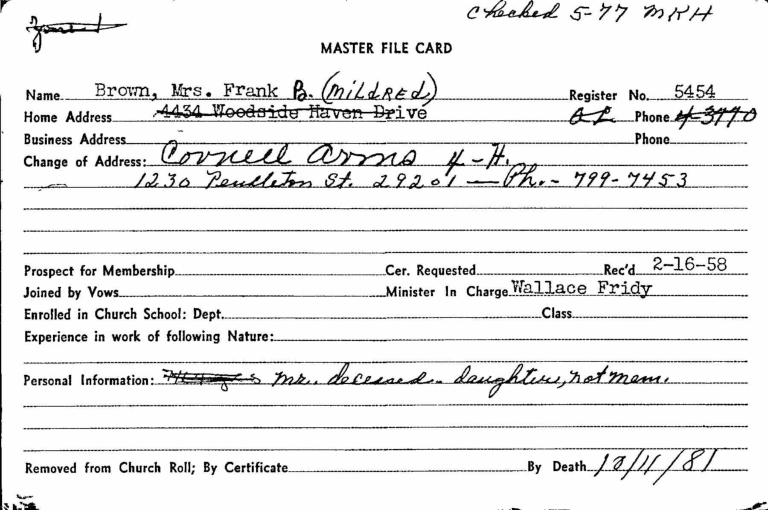 Checked 5-77 MKH
MASTER FILE CARD
Name Brown, Mrs. Frank B. (MILDRED) Register No. 5454
Home Address 4434 Woodside Haven Drive AL Phone 4-3770
Business Address Phone
Change of Address: Cornell Arms 4-H.
1230 Pendleton St. 29201 — Ph. - 799-7453
Prospect for Membership Cer. Requested Rec'd 2-16-58
Joined by Vows Minister In Charge Wallace Fridy
Enrolled in Church School: Dept. Class
Experience in work of following Nature:
Personal Information: Mr. deceased - daughters, not mem.
Removed from Church Roll; By Certificate By Death 12/11/81